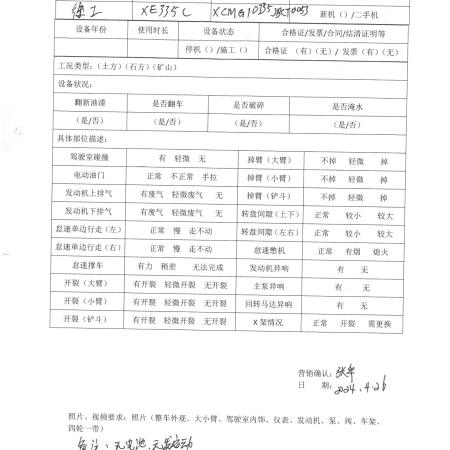 徐工 XE335C 新机（）/二手机
设备年份 使用时长 设备状态 合格证/发票/合同/结清证明等
停机（）/施工（） 合格证 （有）（无）/ 发票（有）（无）
工况类型：（土方）（石方）（矿山）
设备状况：
翻新油漆 是否翻车 是否破碎 是否淹水
（是/否） （是/否） （是/否） （是/否）
具体部位描述：
驾驶室碰撞 有 轻微 无 掉臂（大臂） 不掉 轻微 掉
电动油门 正常 不正常 手拉 掉臂（小臂） 不掉 轻微 掉
发动机上排气 有废气 轻微废气 无 掉臂（铲斗） 不掉 轻微 掉
发动机下排气 有废气 轻微废气 无 转盘间隙（上下） 正常 较小 较大
怠速单边行走（左） 正常 慢 走不动 转盘间隙（左右） 正常 较小 较大
怠速单边行走（右） 正常 慢 走不动 怠速憋机 正常 有烟 熄火
怠速撑车 有力 稍差 无法完成 发动机异响 有 无
开裂（大臂） 有开裂 轻微开裂 无开裂 主泵异响 有 无
开裂（小臂） 有开裂 轻微开裂 无开裂 回转马达异响 有 无
开裂（铲斗） 有开裂 轻微开裂 无开裂 X 架情况 正常 开裂 需更换
营销确认：
日 期： 2024.4.26
照片、视频要求：照片（整车外观、大小臂、驾驶室内饰、仪表、发动机、泵、阀、车架、
四轮一带）
备注：无电池，无法启动